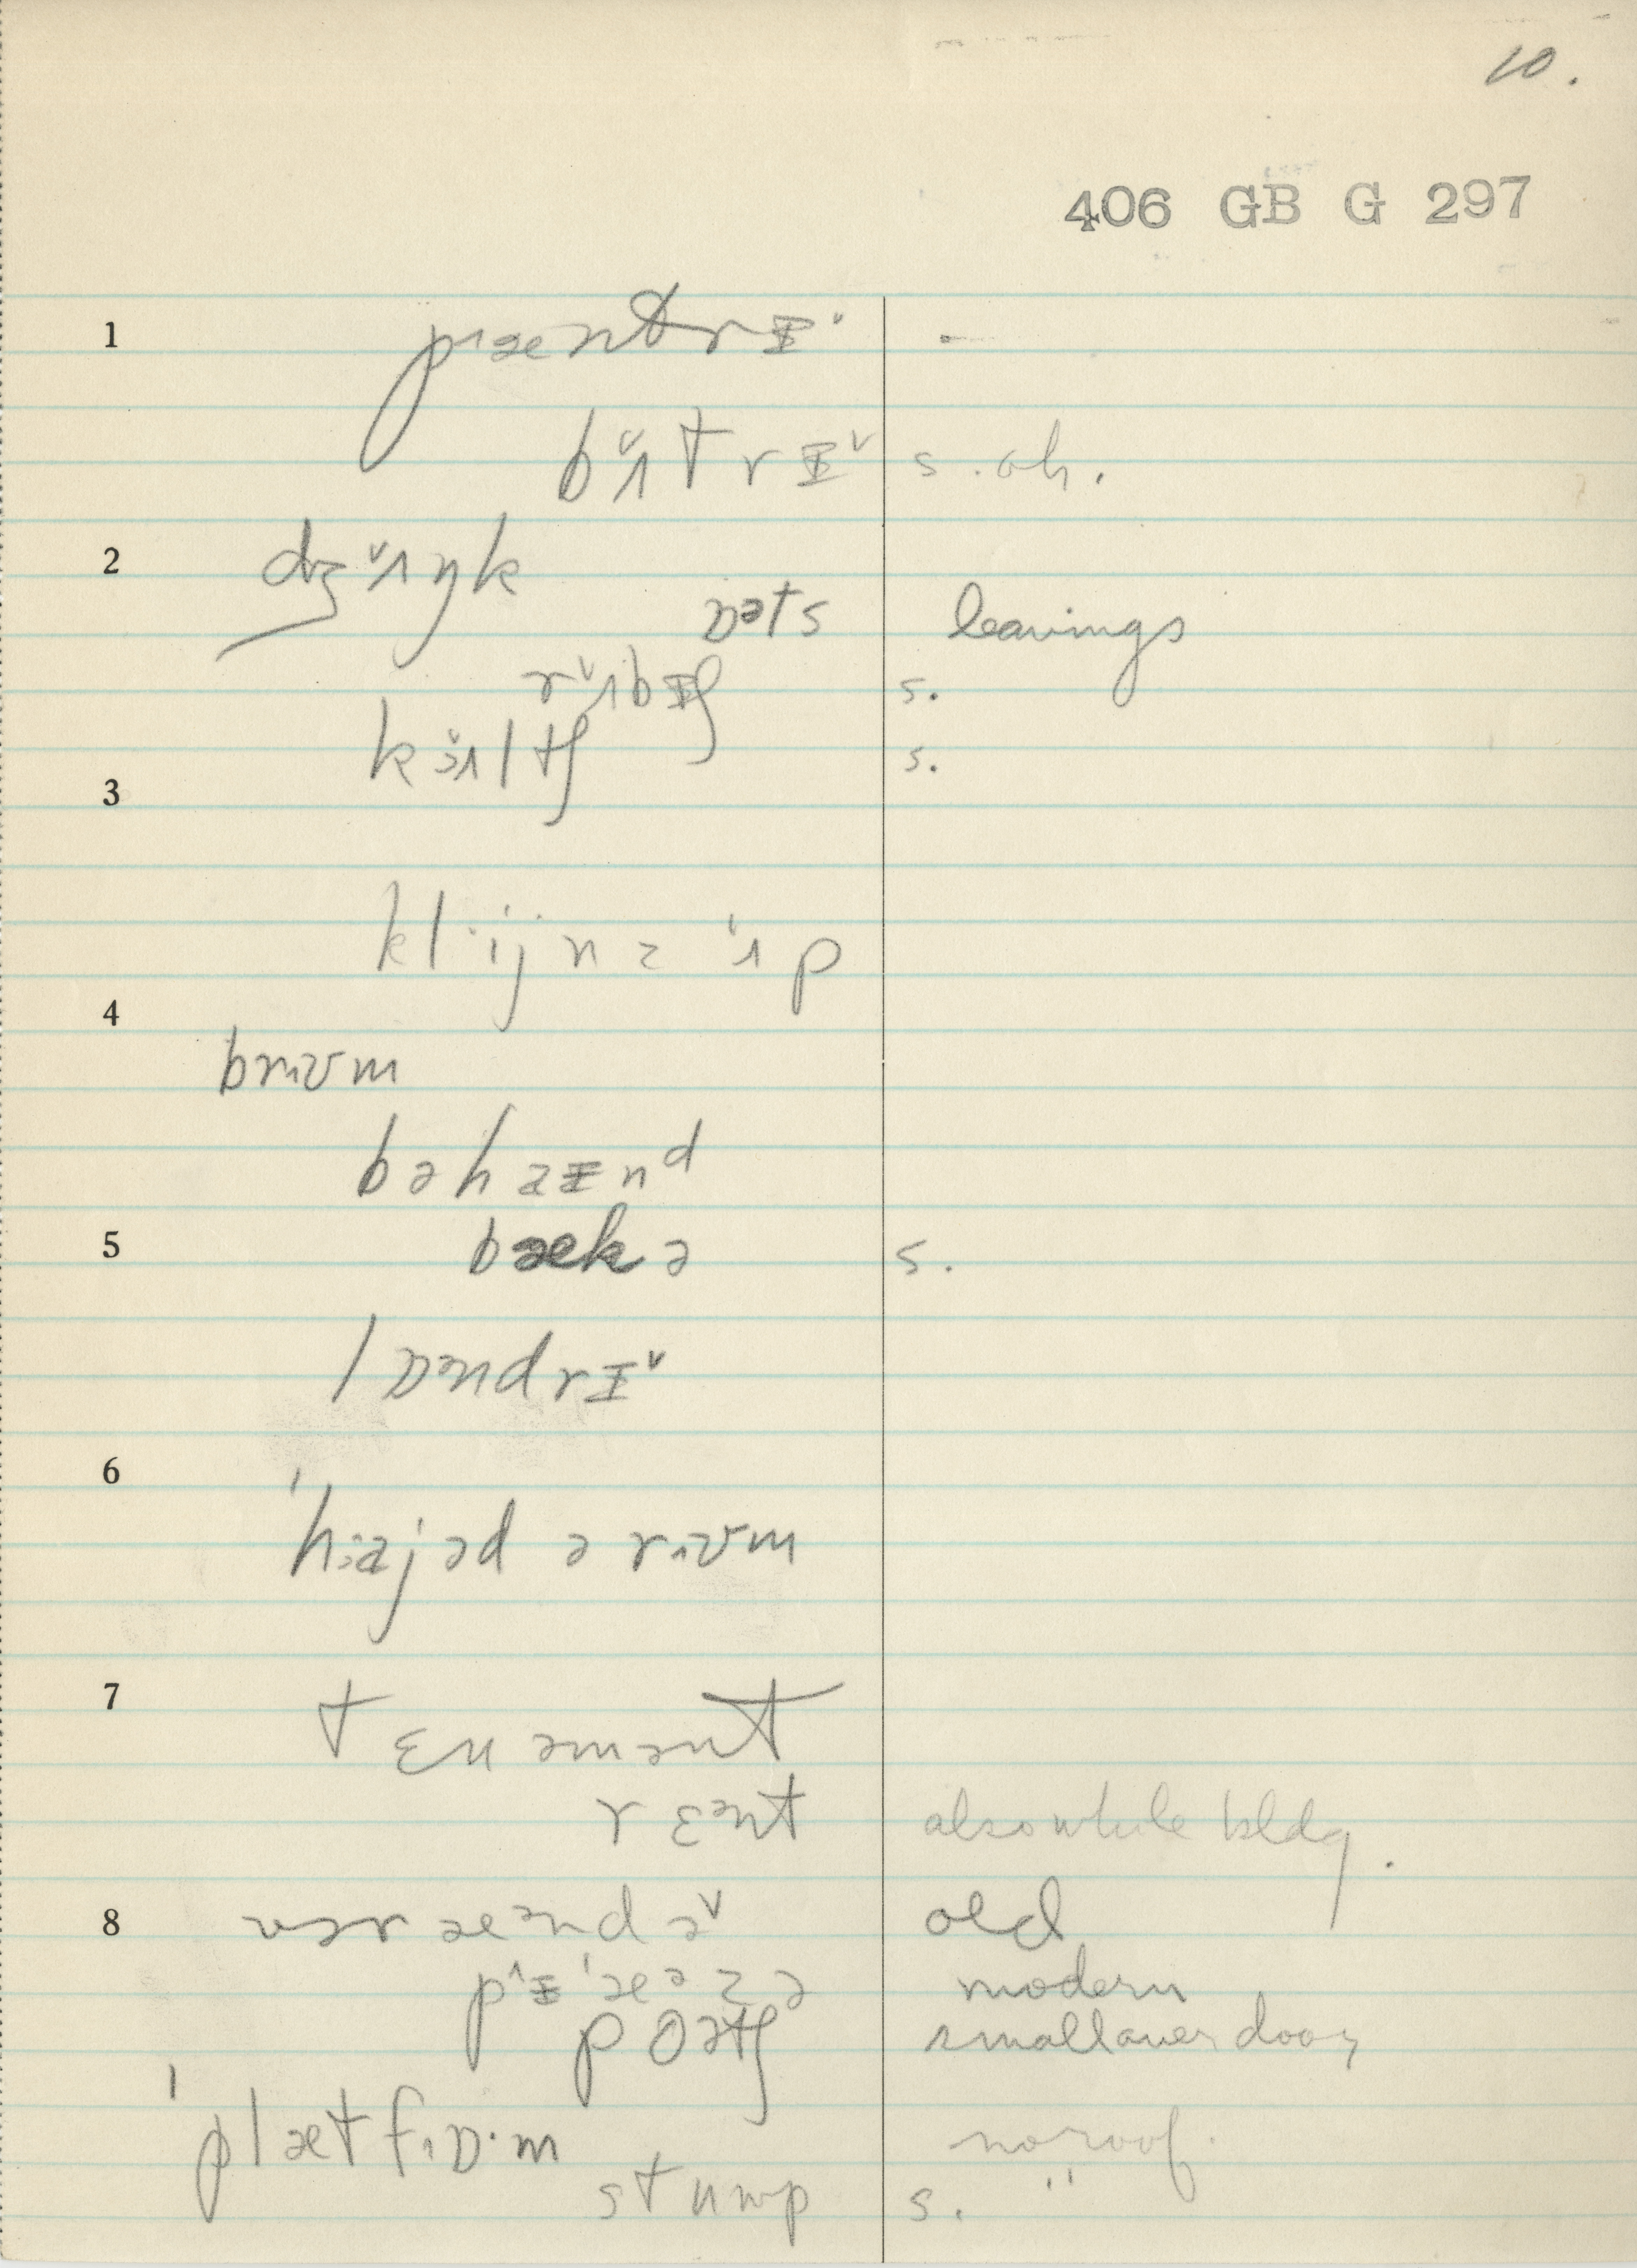 10.
406 GB G 297
1 pɹæntrɪ˅ -
b˅ɹtrɪ˅ s. oh.
2 dʒ˅ɹŋk
ɒəts leavings
r˅ɹbɪʃ s.
k ɹltʃ s.
3
kl·ijnz ˈɹp
4
brɪʊm
bəhaɪnᵈ
5 bækə s.
lɒəndrɪ˅
6
ˈhɜajəd ə rɪʊm
7 tɛnəmənt
rɛᵊnt also whole bldg.
8 vəræəndə˅ old
pɪˈæᵊzə modern
poətʃ small over door
ˈplætfɹɒ·m no roof.
stʌmp s. "